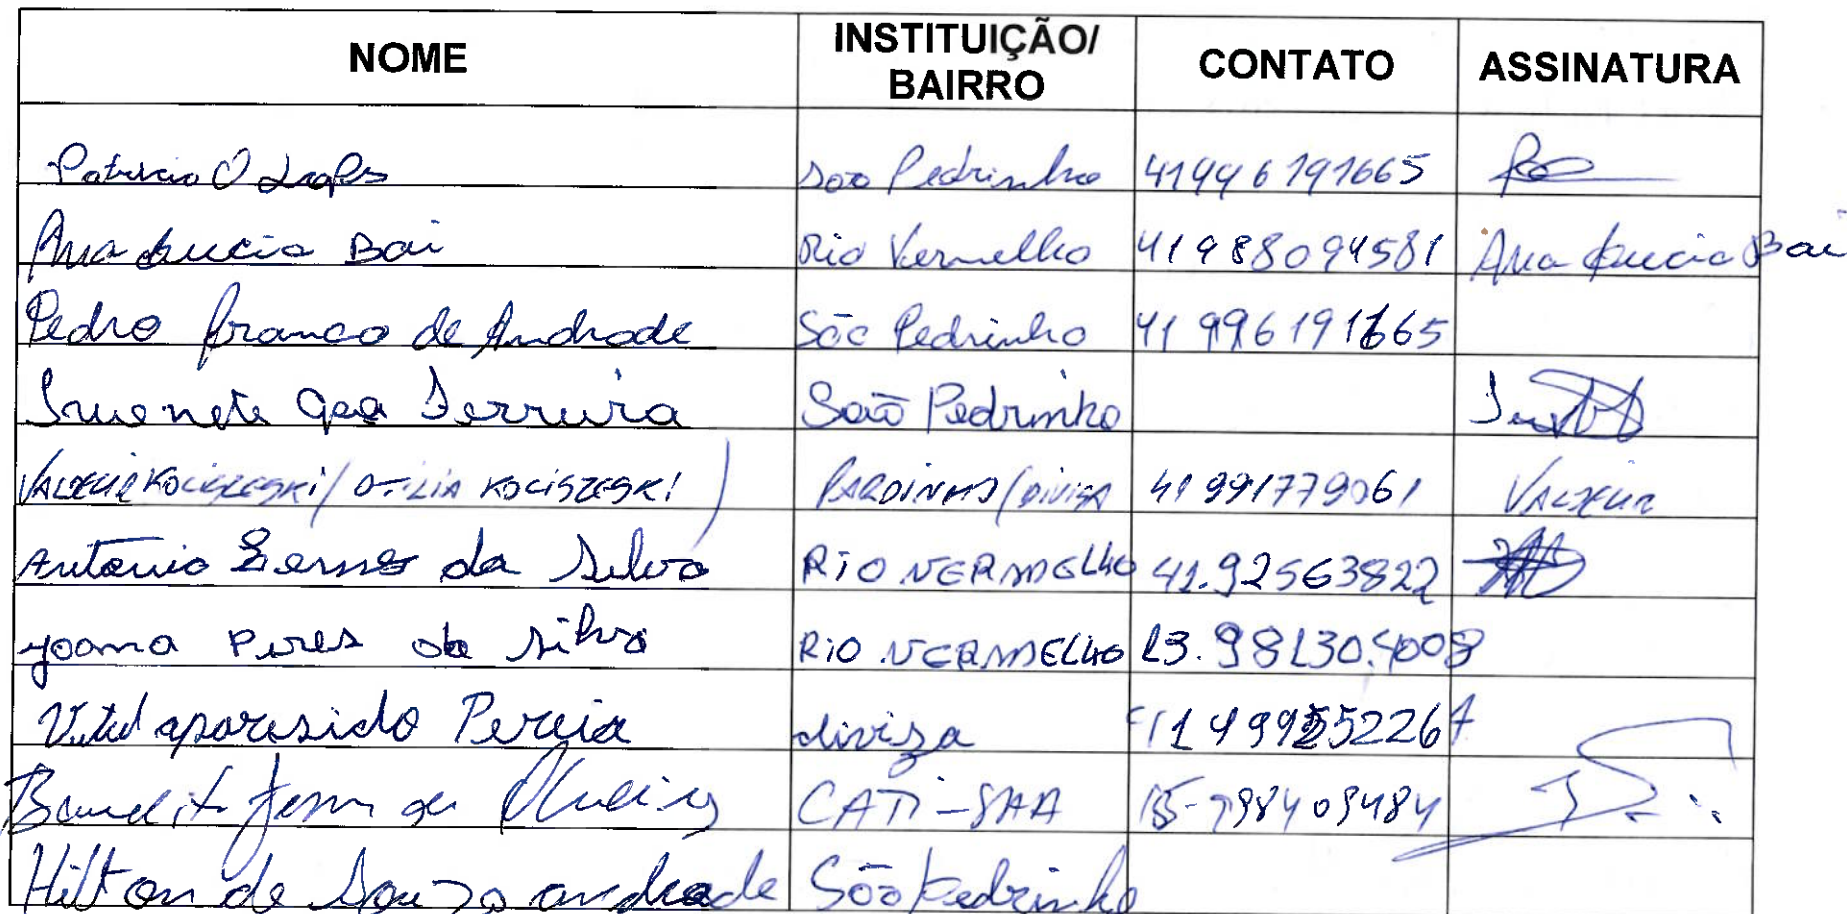 NOME INSTITUIÇÃO/ BAIRRO CONTATO ASSINATURA
Patricia O Lopes São Pedrinho 41996191665
Ana Lucia Bai Rio Vermelho 41988094581 Ana Lucia Bai
Pedro franco de Andrade São Pedrinho 41 996191665
Ferreira São Pedrinho
KOCISZESKI / OTILIA KOCISZESKI PARDINHO / DIVISA 41991779061
Antonio da Silva RIO VERMELHO 41.92563822
Joana Pires da Silva RIO VERMELHO 13.98130.4008
aparesido Pereia divisa
de Oliveira CATI-SAA 15-998409484
Hilton de Souza andrade São Pedrinho